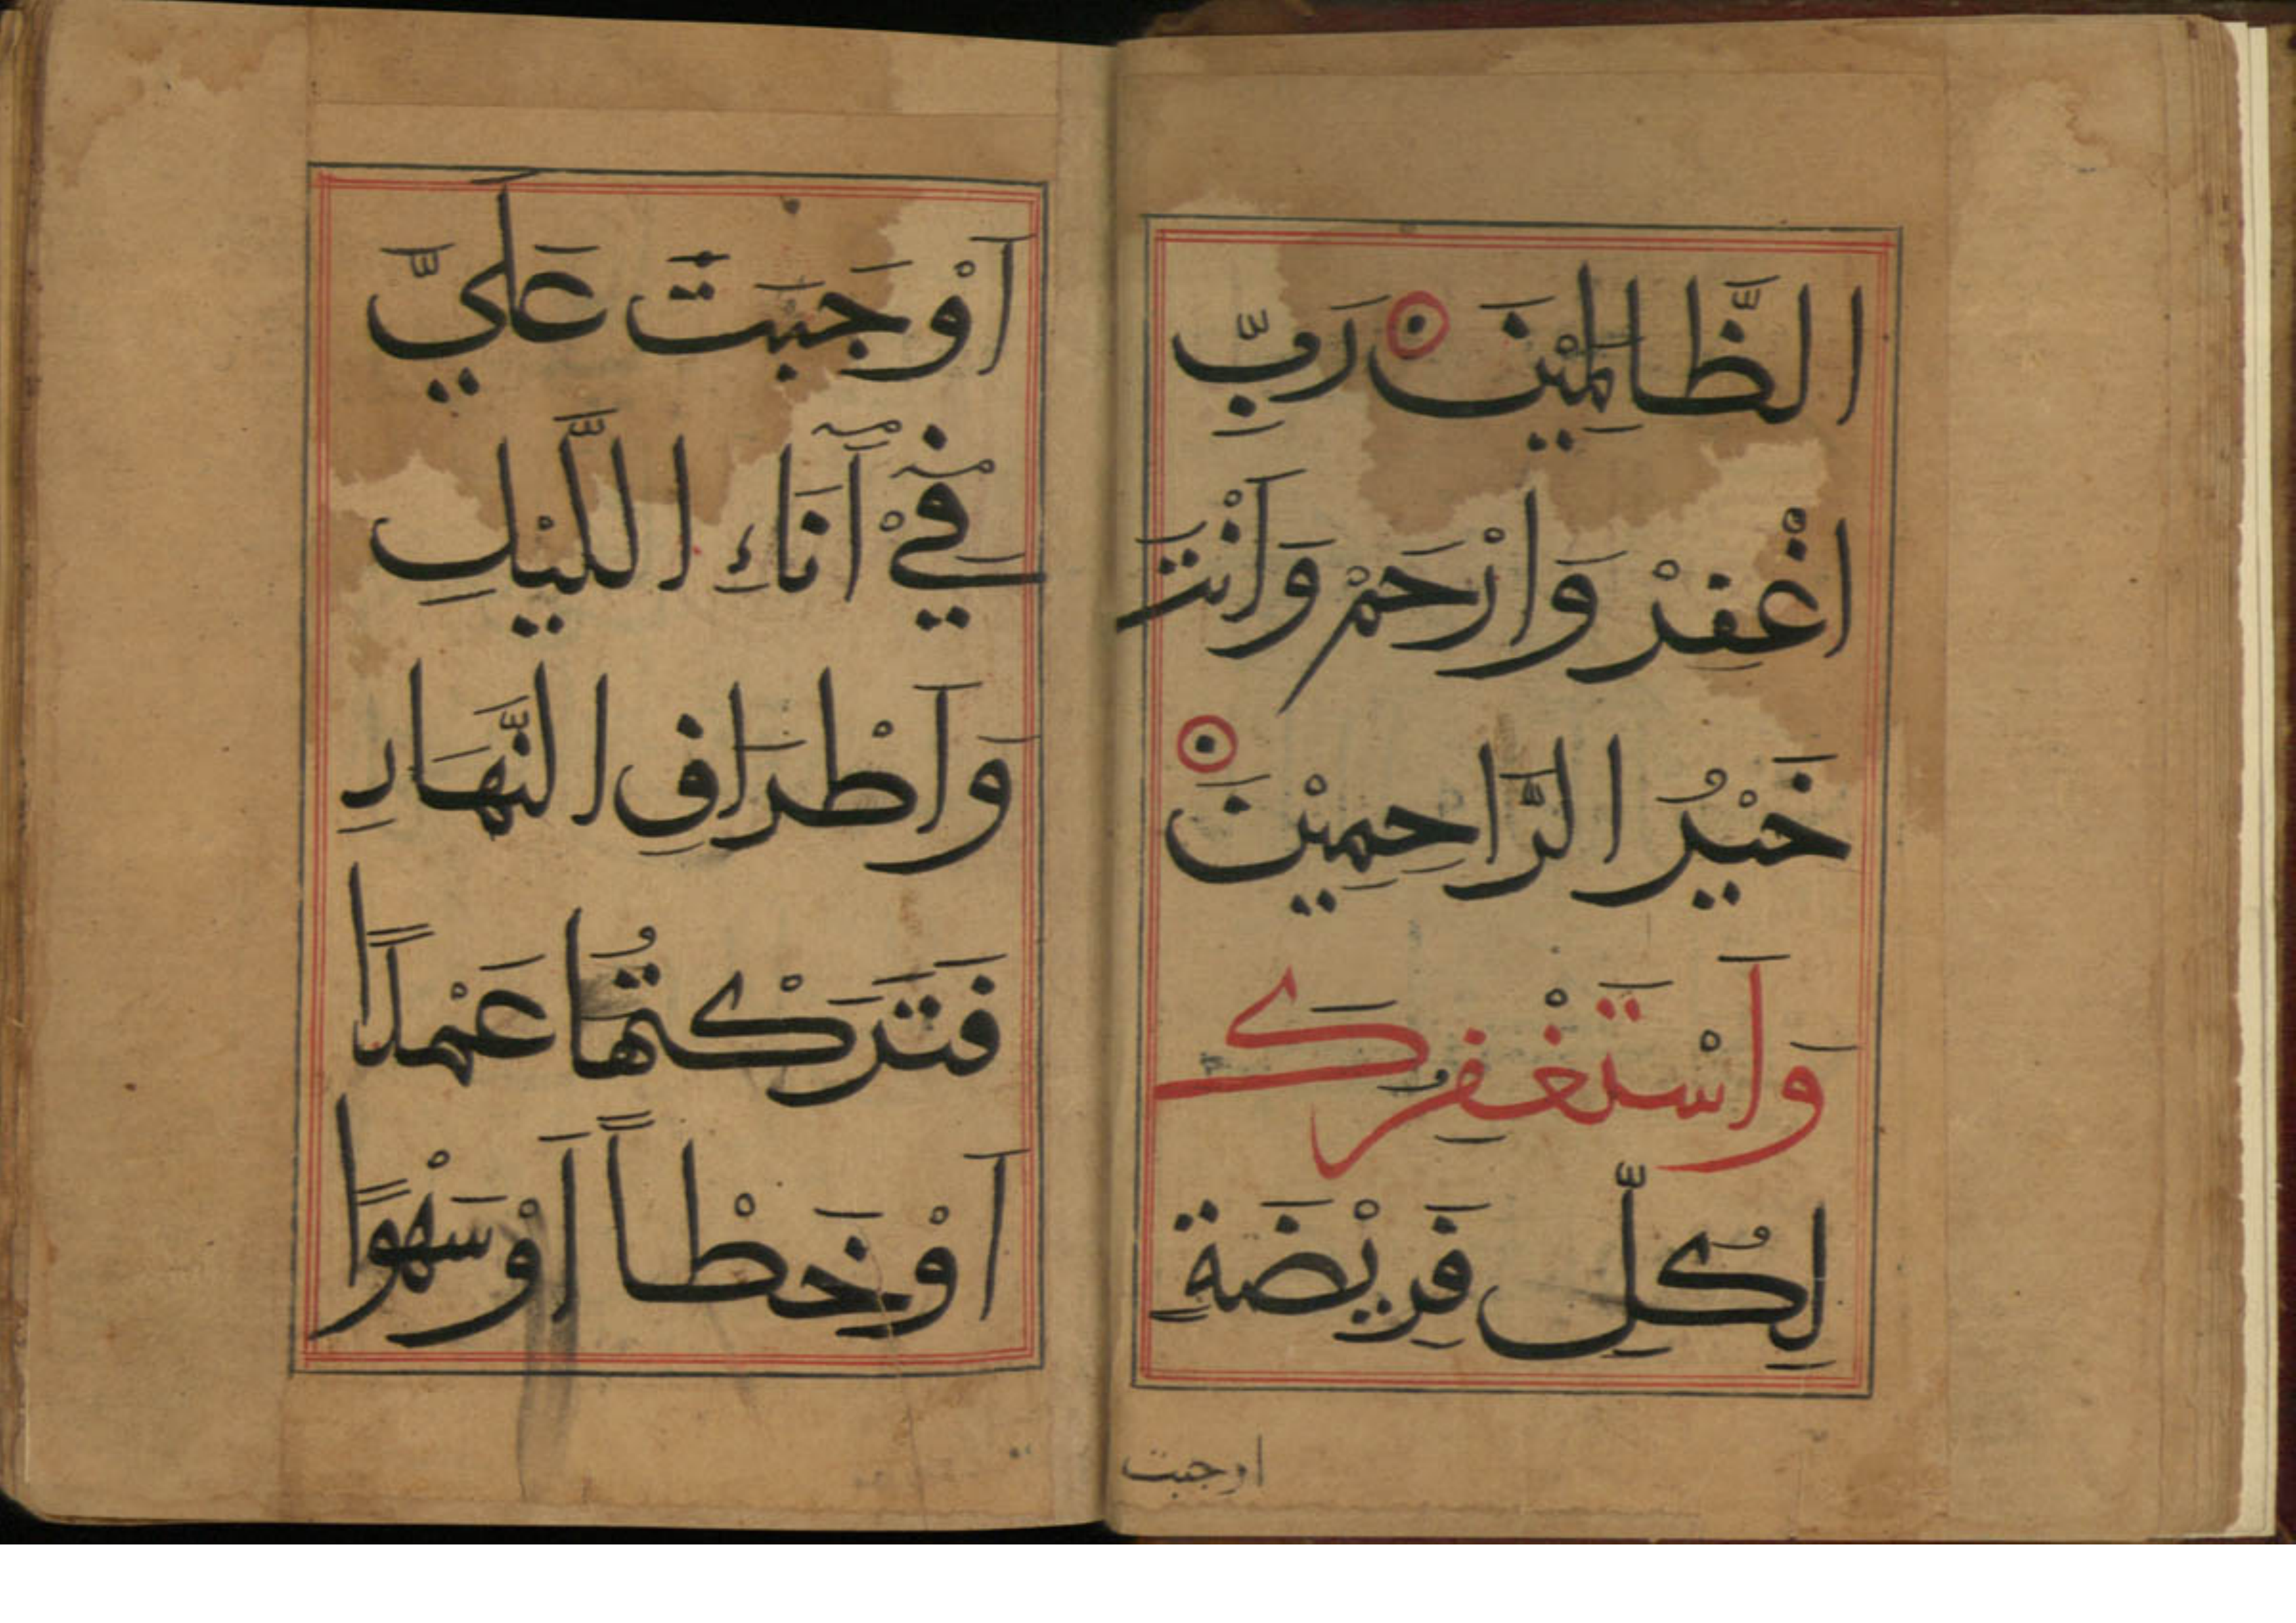 الظَّالِمِيْنَ رَبِّ
اغْفِرْ وَارْحَمْ وَاَنْتَ
خَيْرُ الرَّاحِمِيْنَ
وَاَسْتَغْفِرُكَ
لِكُلِّ فَرِيْضَةٍ
اوجبت
اَوْجَبْتَ عَلَيَّ
فِيْ آنَاءِ اللَّيْلِ
وَاَطْرَافِ النَّهَارِ
فَتَرَكْتُهَا عَمْدًا
اَوْ خَطْاً اَوْ سَهْوًا